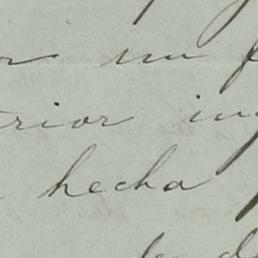 r un f
rior in
hecha